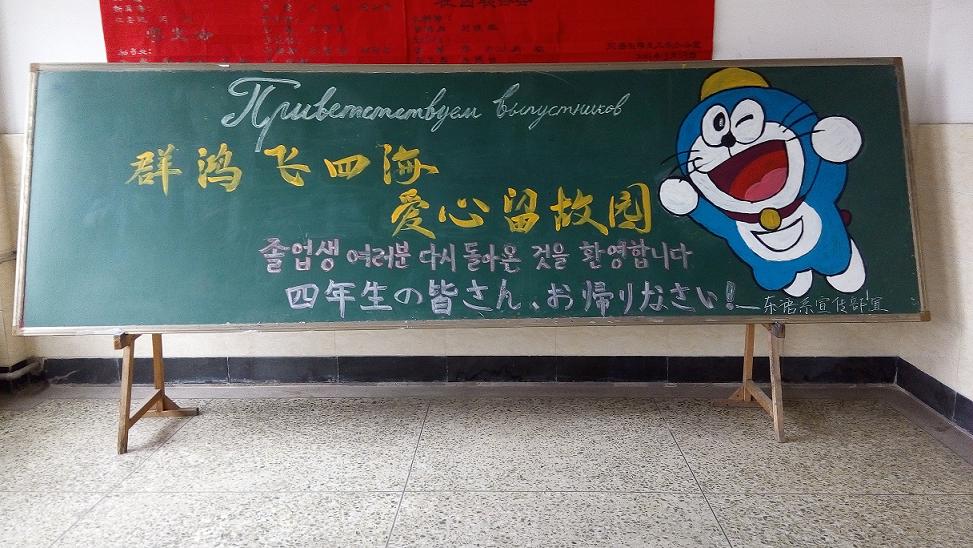 Приветствуем выпустников
群鸿飞四海
爱心留故园
졸업생 여러분 다시 돌아온 것을 환영합니다
四年生の皆さん、お帰りなさい!
—东语系宣传部宣